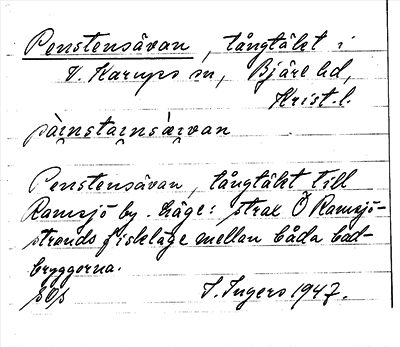 Penstensävan, tångtäkt i
V. Karups sn, Bjäre hd,
Krist. l.
Penstensävan, tångtäkt till
Ramsjö by. Läge: strax Ö Ramsjö-
strands fiskläge mellan båda båd-
bryggorna.
S. Ingers 1947.